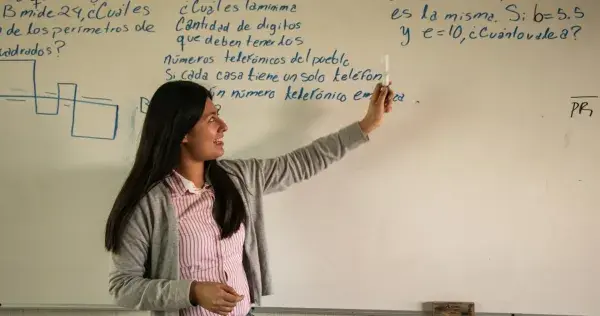 B mide 24, ¿Cuáles
de los perímetros de
cuadrados?
¿Cuál es la mínima
Cantidad de digitos
que deben tener los
números telefónicos del pueblo
Si cada casa tiene un solo teléfon
un número telefónico em
es la misma. Si b=5.5
y e=10, ¿Cuánto vale a?